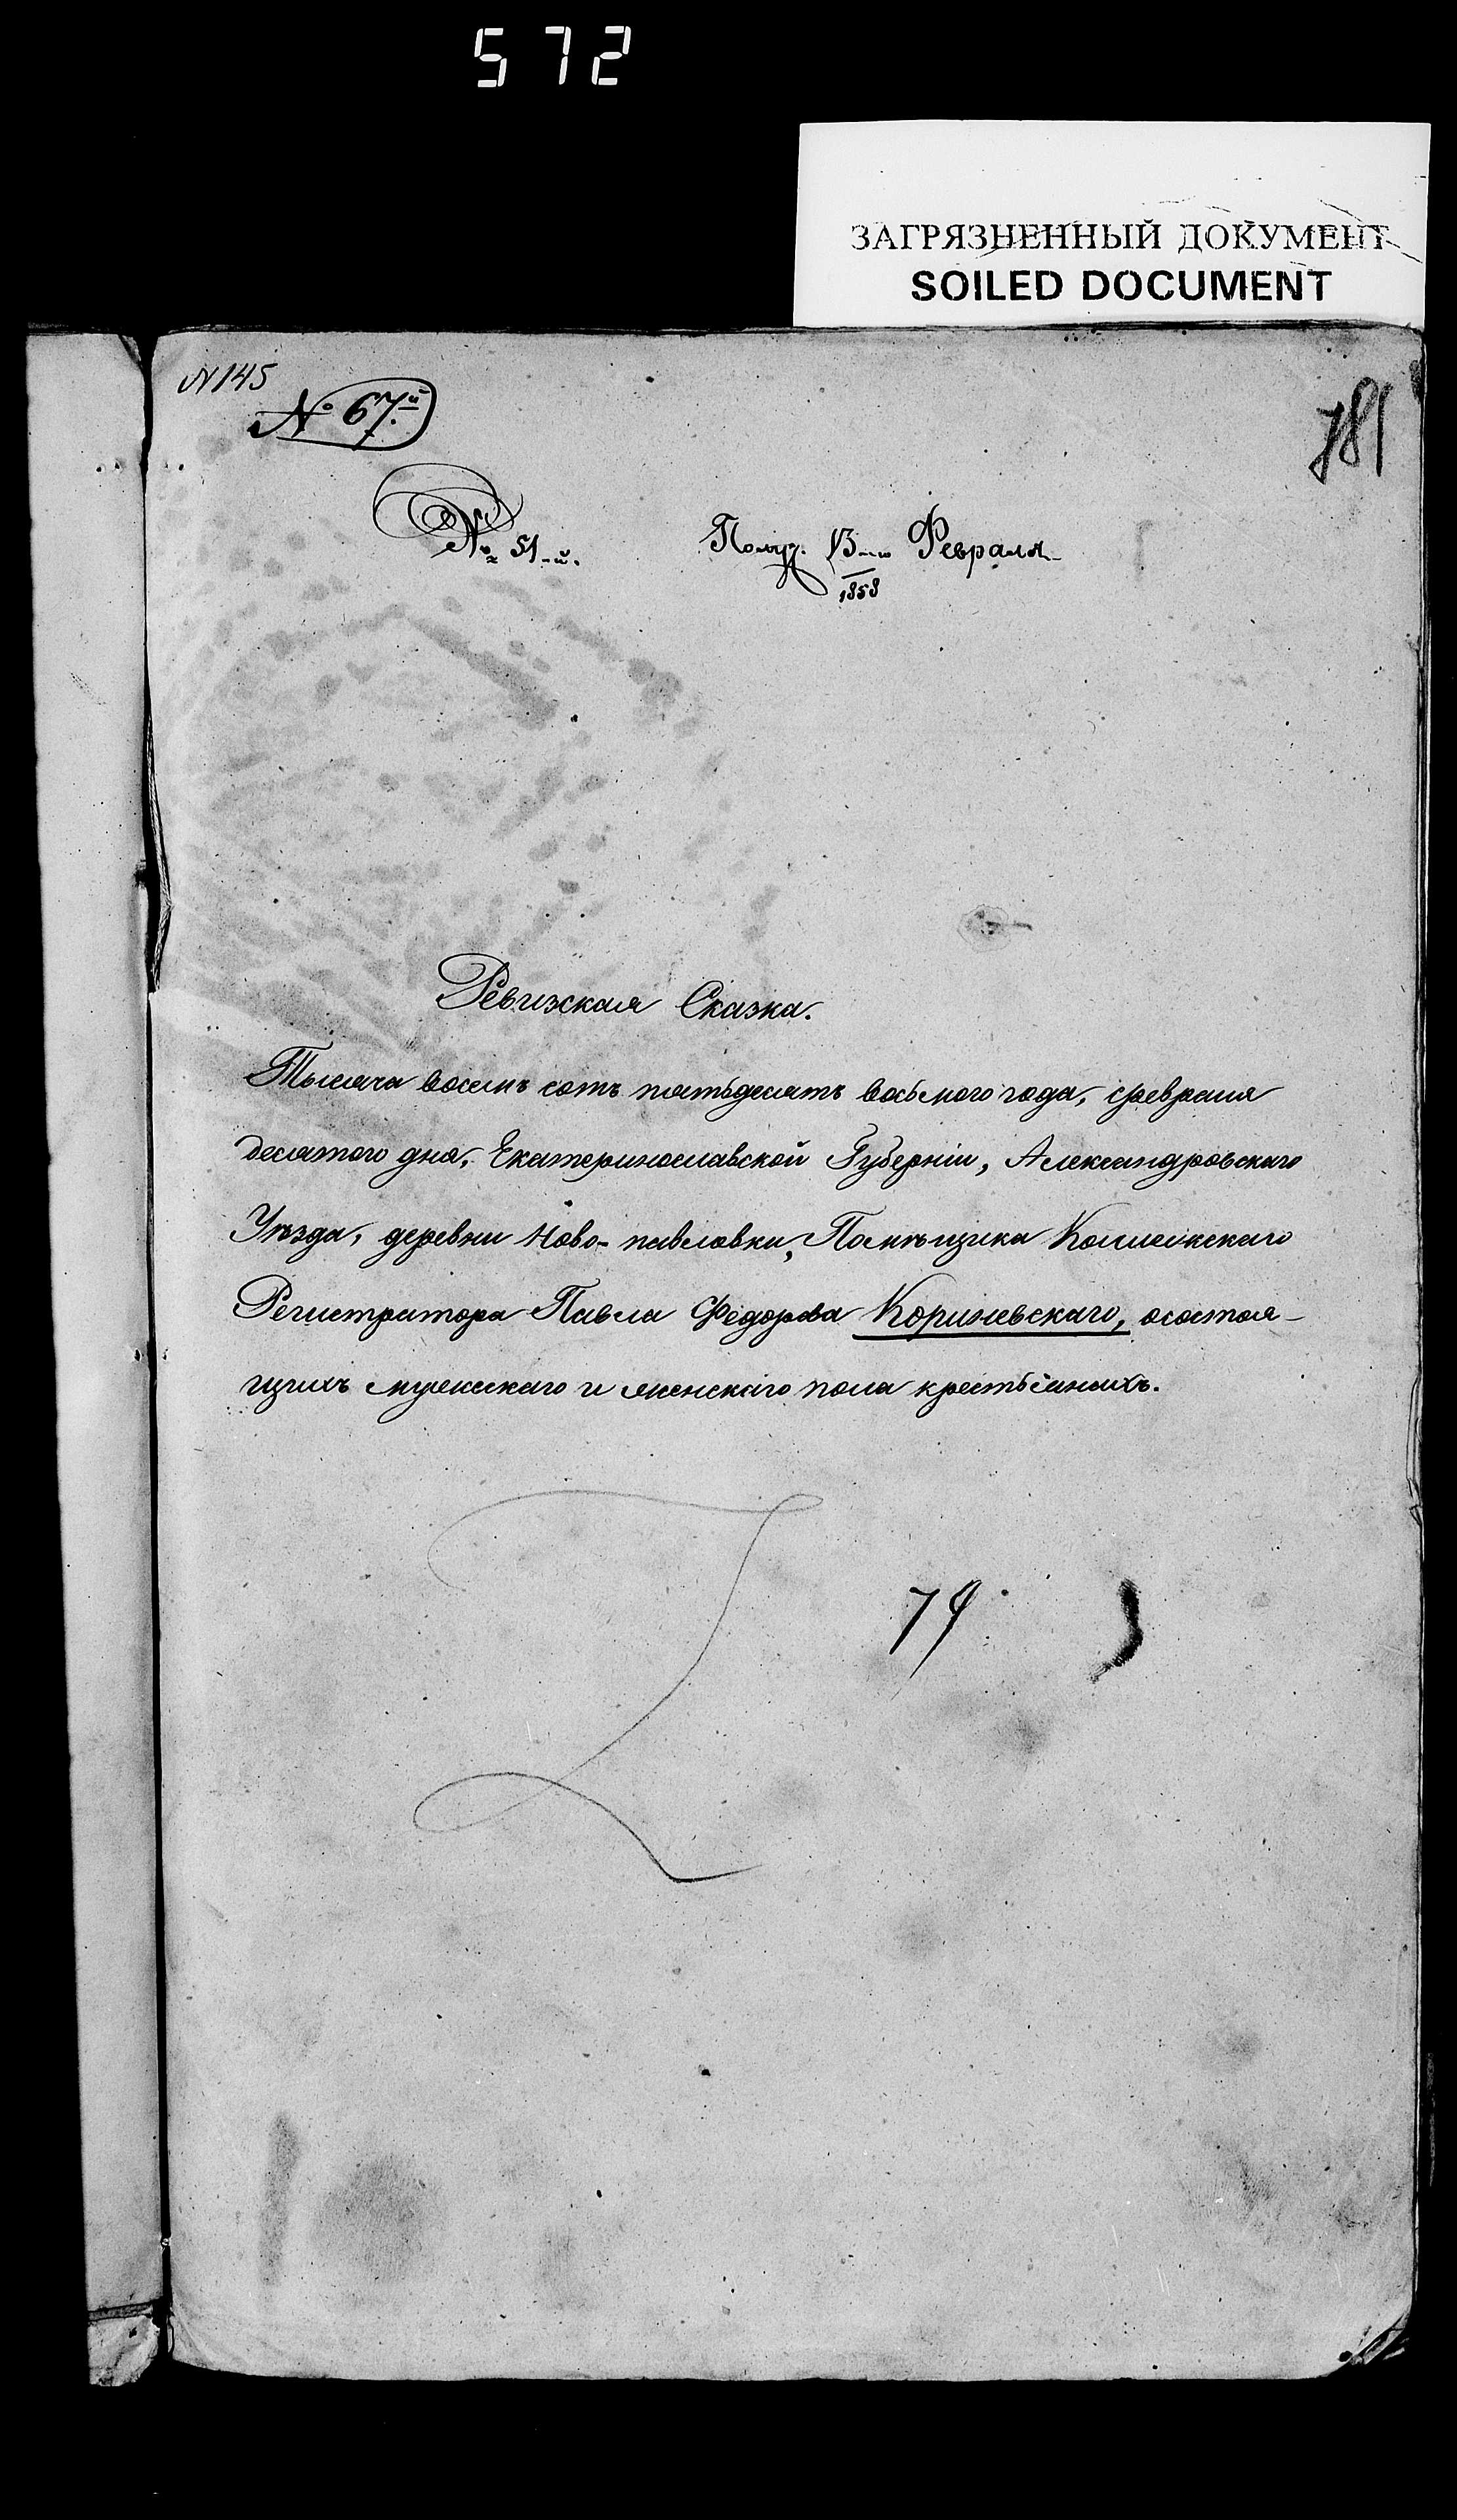 572
ЗАГРЯЗНЕННЫЙ ДОКУМЕНТ
SOILED DOCUMENT
N 145
№ 67.й
781
№ 51-й.
Получ. 13-го Февраля
1858
Ревизская Сказка.
Тысяча восемь сотъ пятьдесятъ восьмого года, февраля
десятого дня, Екатеринославской Губерніи, Александровскаго
Уѣзда, деревни Ново-павловки, Помѣщика Коллежскаго
Регистратора Павла Федорова Кориневскаго, осостоя-
щихъ мужескаго и женскаго пола крестьянахъ.
79